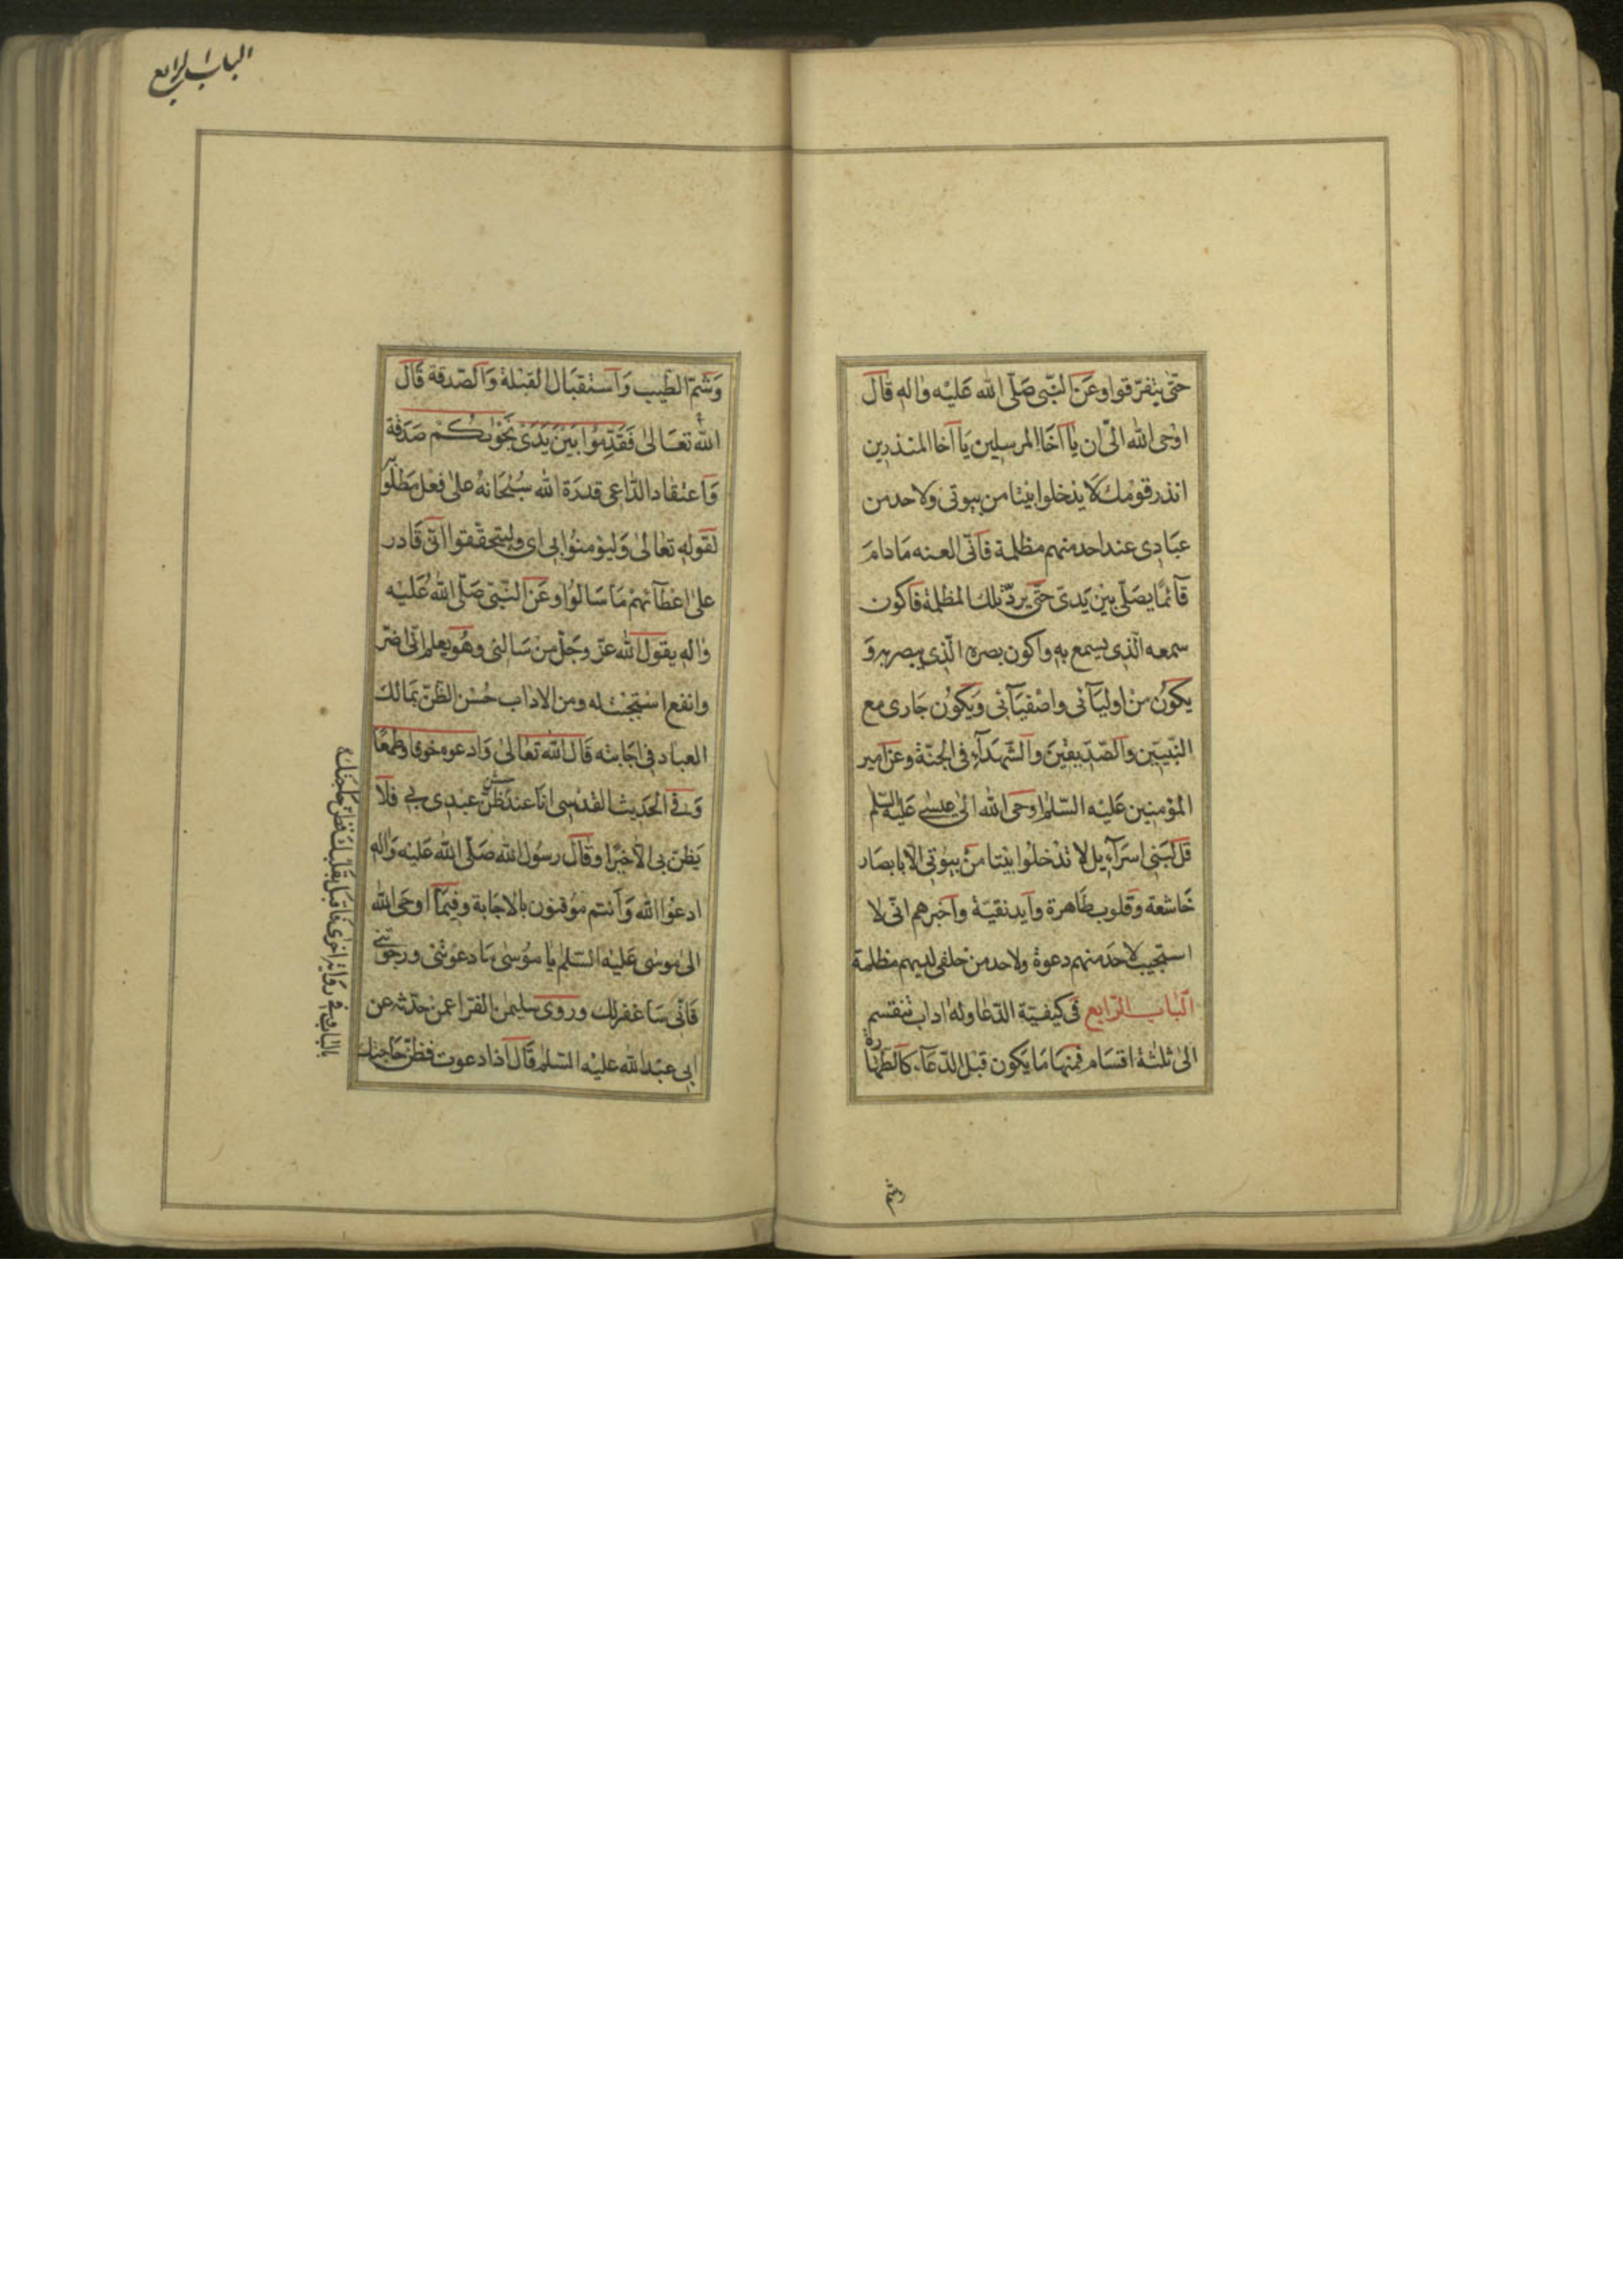 حتّى يتفرّقوا وعن النّبى صلّى الله عليه واله قال
اوحى الله الىّ ان يا اخا المرسلين يا اخا المنذرين
انذر قومك لا يدخلوا بيتا من بيوتى ولاحد من
عبادى عند احد منهم مظلمة فانّى العنه ما دام
قآئما يصلّى بين يدىّ حتّى يردّ تلك المظلمة فاكون
سمعه الّذى يسمع به واكون بصره الّذى يبصر به و
يكون من اوليآئى واصفيآئى ويكون جارى مع
النّبيّين والصّدّيقين والشّهدآء فى الجنّة وعن امير
المؤمنين عليه السّلم اوحى الله الى عيسى عليه السّلم
قل لبنى اسرآءيل لا تدخلوا بيتا من بيوتى الّا بابصار
خاشعة وقلوب طاهرة وايد نقيّة واخبرهم انّى لا
استجيب لاحد منهم دعوة ولاحد من خلفى لديهم مظلمة
الباب الرّابع فى كيفيّة الدّعا وله اداب تنقسم
الى ثلثة اقسام فمنها ما يكون قبل الدّعآء كالطّهارة
وشم
الباب الرابع
وشمّ الطّيب واستقبال القبلة والصّدقة قال
الله تعالى فقدّموا بين يدى نجويكم صدقة
واعتقاد الدّاعى قدرة الله سبحانه على فعل مطلوبه
لقوله تعالى وليؤمنوا بى اى وليتحقّقوا انّى قادر
على اعطآئهم ما سالوا وعن النّبىّ صلّى الله عليه
واله يقول الله عزّ وجلّ من سالنى وهو يعلم انّى اضرّ
وانفع استجبت له ومن الاداب حسن الظّنّ بمالك
العباد فى اجابته قال الله تعالى وادعوه خوفا وطمعا
وفى الحديث القدسى انا عند ظنّ عبدى بى فلا
يظنّ بى الّا خيرا وقال رسول الله صلّى الله عليه واله
ادعوا الله وانتم موقنون بالاجابة وفيما اوحى الله
الى موسى عليه السّلم يا موسى ما دعوتنى ورجوتنى
فانّى ساغفر لك وروى سليمن بن الفرا عمن حدّثه عن
ابى عبد الله عليه السّلم قال اذا دعوت فظنّ حاجتك
بالباب وفى رواية اخرى فاقبل بقلبك فظنّ حاجتك